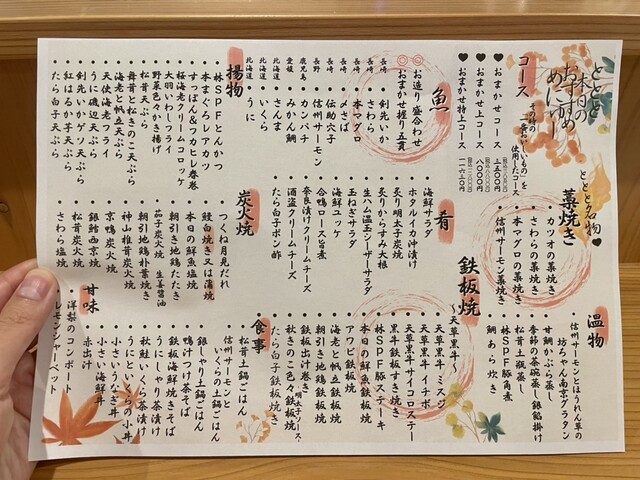 ととと
本日の
おすすめ
めにゅー
コース
その時の
“美味しいもの”を
使用したコース
♥おまかせコース 三五〇〇円
♥おまかせ上コース 八〇〇〇円
♥おまかせ特上コース
魚
◎お造り盛合わせ
◎おまかせ握り五貫
長崎・剣先いか
長崎・さわら
長崎・本マグロ
長崎・〆さば
長崎・伝助穴子
長野・信州サーモン
鹿児島・カンパチ
愛媛・みかん鯛
北海道・さんま
北海道・いくら
北海道・うに
揚物
・林SPFとんかつ
・本まぐろレアカツ
・すっぽん&フカヒレ春巻
・桜海老クリームコロッケ
・大羽いわしフライ
・野菜色々かき揚げ
・松茸天ぷら
・舞茸と松きのこ天ぷら
・海老と帆立天ぷら
・天使海老フライ
・うに磯辺天ぷら
・剣先いかゲソ天ぷら
・紅はるか芋天ぷら
・たら白子天ぷら
ととと名物♥
藁焼き
・カツオの藁焼き
・さわらの藁焼き
・本マグロの藁焼き
・信州サーモン藁焼き
肴
・海鮮サラダ
・ホタルイカ沖漬け
・炙り明太子炭焼
・炙りからすみ大根
・生ハム温玉シーザーサラダ
・玉ねぎサラダ
・海鮮ユッケ
・合鴨ロース旨煮
・奈良漬けクリームチーズ
・酒盗クリームチーズ
・たら白子ポン酢
炭火焼
・つくね月見だれ
・鰻白焼き又は蒲焼
・本日の鮮魚塩焼
・朝引き地鶏たたき
・茄子炭火焼 生姜醤油
・朝引地鶏朴葉焼き
・神山椎茸炭火焼
・京鴨炭火焼
・銀鱈西京焼
・松茸炭火焼
・さわら塩焼
温物
・信州サーモンとほうれん草の
坊ちゃん南京グラタン
・甘鯛かぶら蒸し
・季節の茶碗蒸し銀餡掛け
・松茸土瓶蒸し
・林SPF豚角煮
・鯛あら炊き
鉄板焼
～天草黒牛～
・天草黒牛 ミスジ
・天草黒牛 イチボ
・天草黒牛サイコロステーキ
・黒牛鉄板すき焼き
・林SPF豚ステーキ
・本日の鮮魚鉄板焼
・アワビ鉄板焼
・海老と帆立鉄板焼
・朝引き地鶏鉄板焼
・鉄板出汁巻き 明太チーズソース
・秋きのこ色々鉄板焼
・たら白子鉄板焼き
食事
・松茸土鍋ごはん
・信州サーモンと
いくらの土鍋ごはん
・銀しゃり土鍋ごはん
・鴨汁つけ蕎麦
・鉄板海鮮焼きそば
・うにしゃり茶漬け
・秋鮭いくら茶漬け
・うにといくらの小丼
・小さいうなぎ丼
・小さい海鮮丼
・赤出汁
甘味
・洋梨のコンポート
・レモンシャーベット